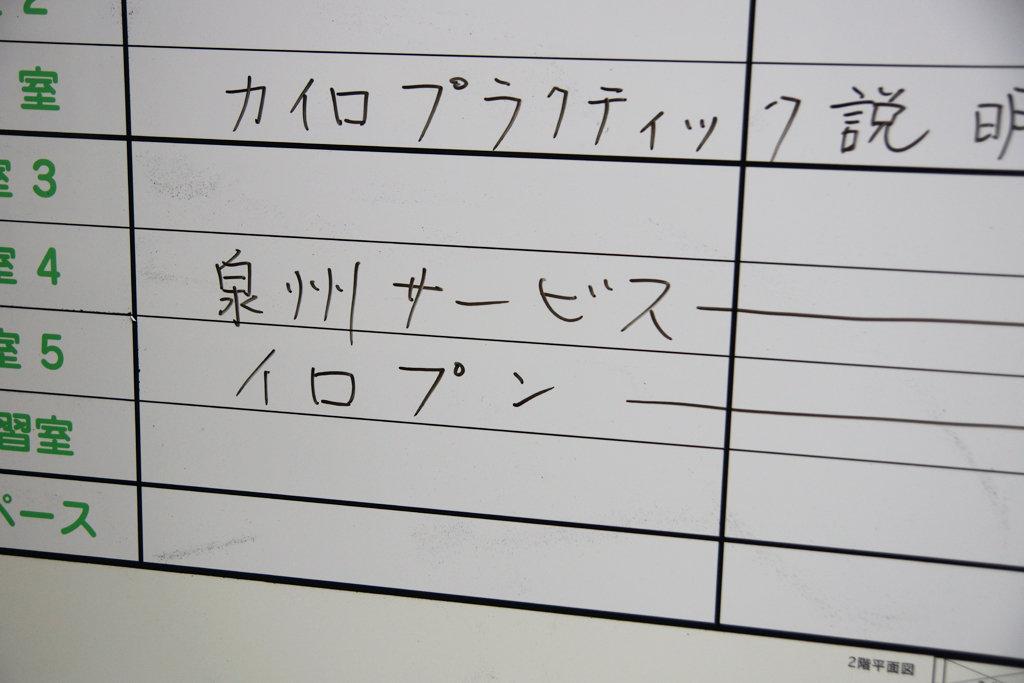 2
室 カイロプラクティック説明
室3
室4 泉州サービス
室5 イロプン
習室
ペース
2階平面図